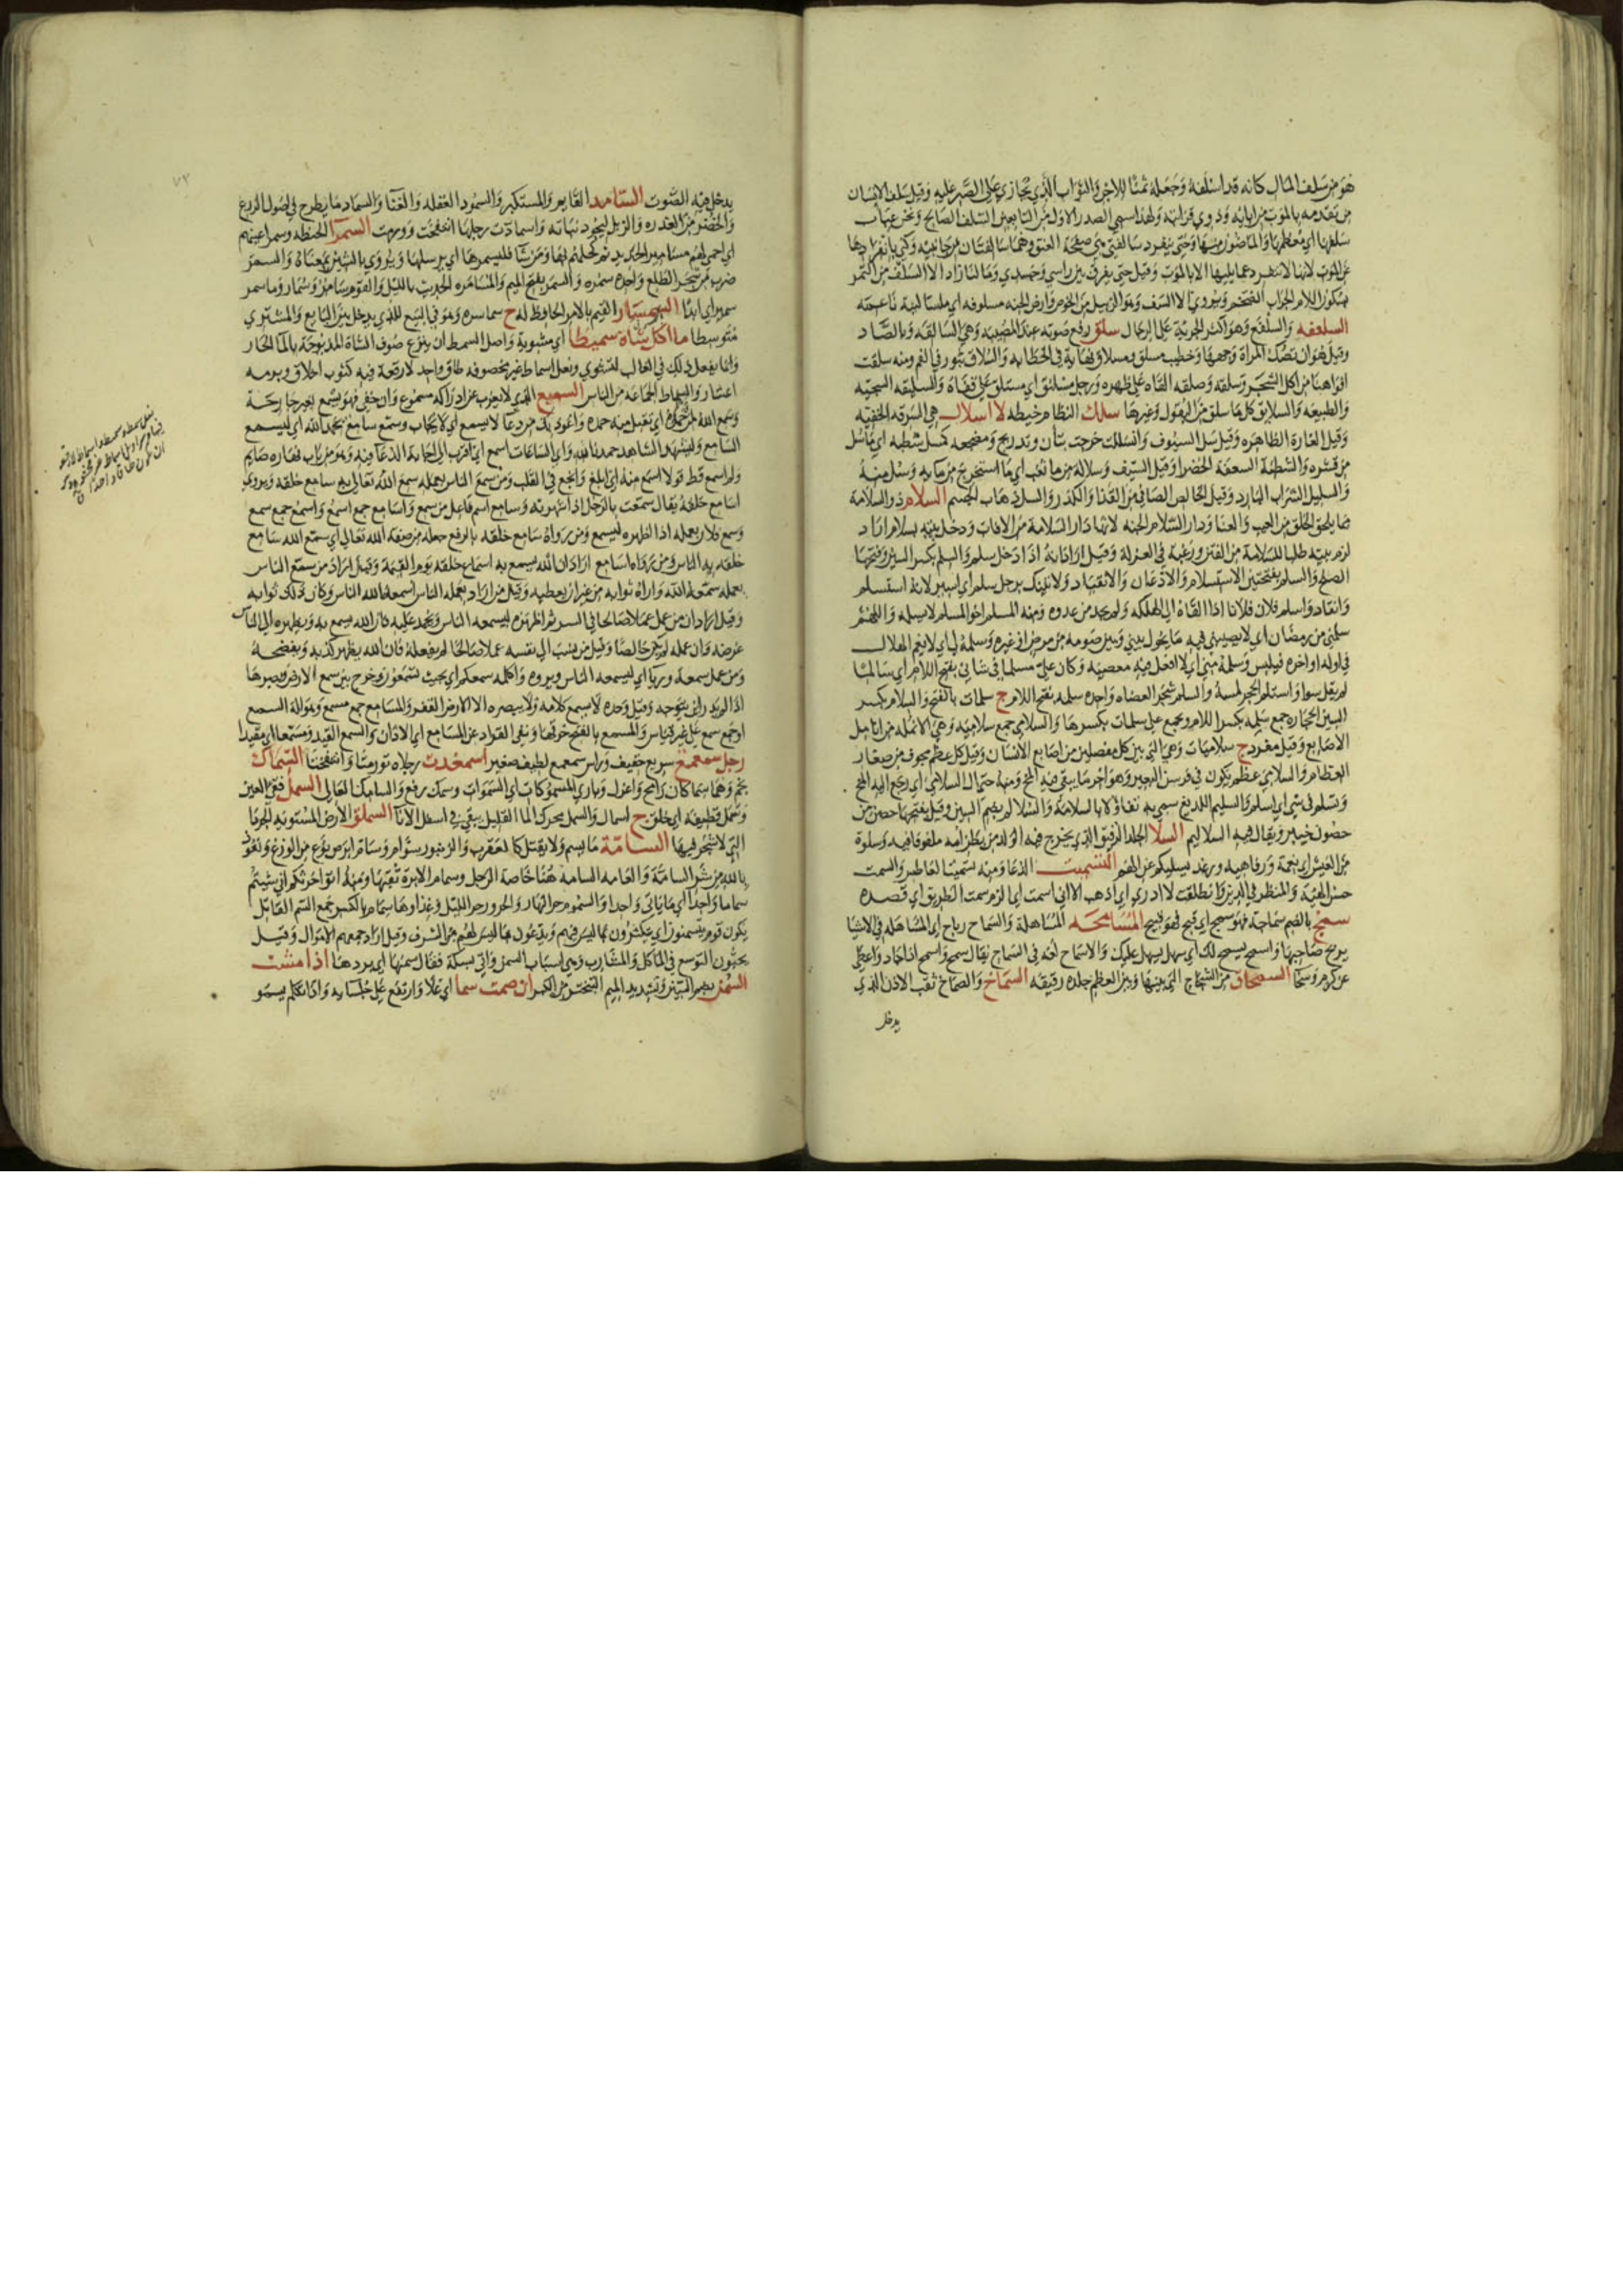 هو من سلف المال كانه قد اسلفه وجعله ثمنا للاجر والثواب الذي يجازي على الصبر عليه وقيل سلف الانسان
من تقدمه بالموت من ابايه وذوي قرابته ولهذا سمي الصدر الاول من التابعين السلف الصالح ونحر عنهاب
سلفها اي معظمها والماضون منها وحتى تنفرد سالفتي هي صفحة العنق وهما سالفتان من جانبيه وكني بانفرادها
عن الموت لانها لا تنفرد عما يليها الا بالموت وقيل حتى يفرق بين راسي وجسدي وما لنا زاد الا السلف من التمر
بسكون اللام الجراب الضخم ويروى الا السف وهو الزبيل من الخوص وارض الجنه مسلوفه اي ملسا لينة ناعمه
السلفعه والسلفع وهو اكثر الجريية على الرجال سلق رفع صوته عند المصيبه وهي السالقه وبالصاد
وقيل هو ان تصك المراة وجهها وخطيب مسلق ومسلاق نهاية في الخطابه والسلاق بثور في الفم ومنه سلقت
افواهنا من اكل الشجر وسلقه وصلقه القاه على ظهره ورجل مسلنق اي مستلق على قفاه والسليقه السجيه
والطبيعه والسلايق كل ما سلق من البقول وغيرها سلك النظام خيطه لا اسلال هي السرقه الخفيه
وقيل الغارة الظاهره وقيل سل السيوف وانسللت خرجت بتأن وتدريج ومضجعه كمسل شطبه اي ما سل
من قشره والشطبة السعفة الخضرا وقيل السيف وسلاله من ما ثغب اي ما استخرج من مايه وسل منه
والسليل الشراب البارد وقيل الخالص الصافي من القذا والكدر والسل ذهاب الجسم السلام ذو السلامة
مما يلحق الخلق من العيب والفنا ودار السلام الجنه لانها دار السلامة من الافات ودخل بيته بسلام اراد
لزم بيته طلبا للسلامة من الفتن ورغبة في العزلة وقيل اراد انه اذا دخل سلم والسلم بكسر السين وفتحها
الصلح والسلم بفتحتين الاستسلام والاذعان والانقياد ولاتينك برجل سلم اي اسير لانه استسلم
وانقاد واسلم فلان فلانا اذا القاه الى الهلكه ولم يحمه من عدوه ومنه المسلم اخو المسلم لا يسلمه واللهم
سلمني من رمضان اي لا يصيبني فيه ما يحول بيني وبين صومه من مرض او غيره وسلمه لي اي لا يغم الهلال
في اوله او اخره فيلتبس وسلمه مني اي لا افعل فيه معصيه وكان علي مسلما في شانها بفتح اللام اي سالما
لم يقل سوا واستلم الحجر لمسه والسلم شجر العضاه واحده سلمه بفتح اللام ج سلمات بالفتح والسلام بكسر
السين الحجاره جمع سلمه بكسر اللام ويجمع على سلمات بكسرها والسلامى جمع سلاميه وهي الانمله من انامل
الاصابع وقيل مفرد ج سلاميات وهي التي بين كل مفصلين من اصابع الانسان وقيل كل عظم مجوف من صغار
العظام والسلامى عظم يكون في فرسن البعير وهو اخر ما يبقى فيه المخ ومنه حتى ال السلامى اي رجع اليه المخ
وتسلم في شي اي اسلم والسليم اللديغ سمي به تفاؤلا بالسلامة والسلالم بضم السين وقيل بفتحها حصن من
حصون خيبر ويقال فيه السلاليم السلا الجلد الرقيق الذي يخرج فيه الولد من بطن امه ملفوفا فيه وسلوة
من العيش اي نعمة ورفاهيه ورغد يسليكم عن الهم التسميت الدعا ومنه تسميت العاطس والسمت
حسن الهيئة والمنظر في الدين وانطلقت لا ادري اين اذهب الا اني اسمت اي الزم سمت الطريق اي قصده
سمج بالضم سماجة فهو سمج اي قبح فهو قبيح المسامحه المساهلة والسماح رباح اي المساهلة في الاشيا
يربح صاحبها واسمح يسمح لك اي سهل يسهل عليك والاسماح لغة في السماح يقال سمح واسمح اذا جاد واعطى
عن كرم وسخا السمحاق من الشجاج التي بينها وبين العظم جلده رقيقه السماخ والصماخ ثقب الاذن الذي
يدخل
٧٣
يدخل فيه الصوت السامد القايم والمستكبر والسمود الغفله والغنا والسماد ما يطرح في اصول الزرع
والخضر من العذره والزبل ليجود نباته واسمادت رجلها انتفخت وورمت السمرا الحنطه وسمر اعينهم
اي احمى لهم مسامير الحديد ثم كحلهم بها ومن شا فليسمرها اي يرسلها ويروى بالشين بمعناه والسمر
ضرب من شجر الطلح واحده سمره والسمر بفتح الميم والمسامره الحديث بالليل والقوم سامر وسمار وما سمر
سمير اي ابدا السمسار القيم بالامر الحافظ له ج سماسره وهو في البيع للذي يدخل بين البايع والمشتري
متوسطا ما اكل شاة سميطا اي مشوية واصل السمط ان ينزع صوف الشاة المذبوحة بالما الحار
وانما يفعل ذلك في الغالب لتشوى ونعل اسماط غير مخصوفه طاق واحد لا رقعة فيه كثوب اخلاق وبرمه
اعشار والسماط الجماعه من الناس السميع الذي لا يعزب عن ادراكه مسموع وان خفي فهو يسمع بغير جارحة
وسمع الله لمن حمده اي تقبل منه حمده واعوذ بك من دعا لا يسمع اي لا يجاب وسمع سامع بحمد الله اي ليسمع
السامع وليشهد الشاهد حمدنا لله واي الساعات اسمع اي اقرب الى اجابة الدعا فيه وهو من باب نهاره صايم
ولم اسمع قط قولا اسمع منه اي ابلغ وانجع في القلب ومن سمع الناس بعمله سمع الله تعالى به سامع خلقه ويروى
اسامع خلقه يقال سمعت بالرجل اذا شهرته وسامع اسم فاعل من سمع واسامع جمع اسمع واسمع جمع سمع
وسمع فلان بعمله اذا اظهره ليسمع ومن رواه سامع خلقه بالرفع جعله من صفة الله تعالى اي سمع الله سامع
خلقه به الناس ومن رواه اسامع اراد ان الله يسمع به اسماع خلقه يوم القيمة وقيل اراد من سمع الناس
بعمله سمعه الله واراه ثوابه من غير ان يعطيه وقيل من اراد بعمله الناس اسمعه الله الناس وكان ذلك ثوابه
وقيل اراد ان من عمل عملا صالحا في السر ثم اظهره ليسمعه الناس ويحمد عليه فان الله يسمع به ويظهره الى الناس
غرضه وان عمله لم يكن خالصا وقيل من ينسب الى نفسه عملا صالحا لم يفعله فان الله يظهر كذبه ويفضحه
ومن عمل سمعة وريا اي ليسمعه الناس ويروه واكلمه سمعكم اي بحيث تسمعون وخرج بين سمع الارض وبصرها
اذا لم يدر اين يتوجه وقيل وحده لا يسمع كلامه ولا يبصره الا الارض القفر والمسامع جمع مسمع وهو الة السمع
او جمع سمع على غير قياس والمسمع بالفتح خرقها ونفى القراد عن المسامع اي الاذان والسمع القيد ومسمعا اي مقيدا
رجل سمعمع سريع خفيف وراس سمعمع لطيف صغير اسمعدت رجلاه تورمتا وانتفختا السماك
نجم وهما سماكان رامح واعزل وباري المسموكات اي السموات وسمك رفع والسامك العالي السمل فقؤ العين
وسمل قطيفه اي خلق ج اسمال والسمل بحرك الما القليل يبقى في اسفل الانا السملق الارض المستويه الجردا
التي لا شجر فيها السامة ما يسم ولا يقتل كالعقرب والزنبور ج سوام وسام ابرص نوع من الوزغ ونعوذ
بالله من شر السامة والعامه السامة هنا خاصة الرجل وسمام الابرة ثقبها ومنه فاتوا حرثكم انى شيتم
سماما واحدا اي ماتى واحدا والسموم حر النهار والحرور حر الليل وغذاوها سمام بالكسر جمع السم القاتل
يكون قوم يتسمنون اي يتكثرون بما ليس فيهم ويدعون ما ليس لهم من الشرف وقيل اراد جمعهم الاموال وقيل
يحبون التوسع في الماكل والمشارب وهي اسباب السمن واتي بسمكة فقال سمنها اي بردها اذا مشت
السمهى بضم السين وتشديد الميم التبختر من الكبر ان صمت سما اي علا وارتفع على جلسايه واذا تكلم يسمو
نعل سمط وسمط واسماط لا رقعة